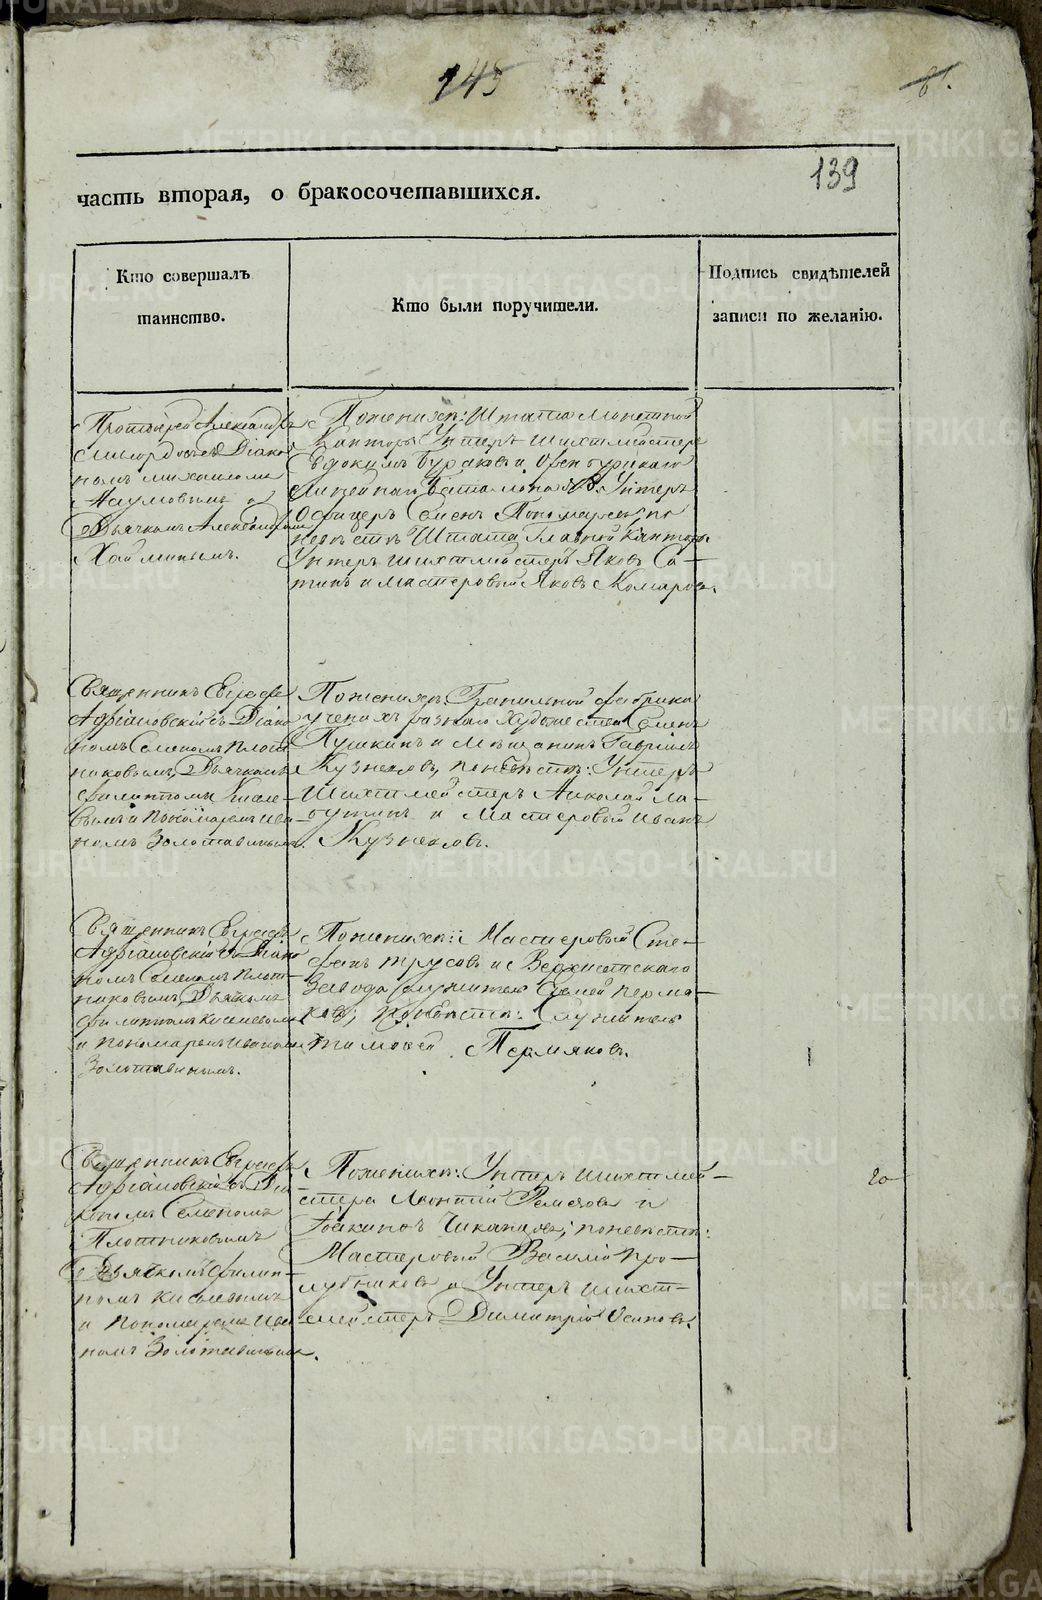 145
139
часть вторая, о бракосочетавшихся.
Кто совершалъ
таинство.
Кто были поручители.
Подпись свидѣтелей
записи по желанію.
Протоіерей Александръ
съ Діако-
номъ Михаиломъ
Наумовымъ и
Дьячкомъ Александромъ
По женихѣ: Штата Монетной
Канторы Унтеръ Шихтмейстеръ
Евдокимъ Бураковъ и Оренбургскаго
Линейнаго Баталіона Унтеръ
Офицеръ Семенъ Пономаревъ; по
невѣстѣ Штата Главной Канторы
Унтеръ Шихтмейстеръ Яковъ Са-
тинъ и мастеровый Яковъ Комаровъ.
Священникъ
Адріановскій съ Діако-
номъ Семеномъ Плот-
никовымъ, Дьячкомъ
Филиппомъ Киселе-
вымъ и Пономаремъ Ива-
номъ Золотавинымъ.
По женихѣ: Гранильной фабрики
ученикъ разнаго Художества Семенъ
Пушкинъ и Мѣщанинъ Гавріилъ
Кузнецовъ, по невѣстѣ: Унтеръ
Шихтмейстеръ Николай Ла-
путинъ и Мастеровый Иванъ
Кузнецовъ.
Священникъ
Адріановскій съ Діако-
номъ Семеномъ Плот-
никовымъ, Дьячкомъ
Филиппомъ Киселевымъ
и Пономаремъ Иваномъ
Золотавинымъ.
По женихѣ: Мастеровый Сте-
фанъ Трусовъ и Верхисетскаго
Завода Служитель Перма-
ковъ; по невѣстѣ: Служитель
Тимофей Пермяковъ.
Священникъ
Адріановскій съ Діа-
кономъ Семеномъ
Плотниковымъ
Дьячкомъ Филип-
помъ Киселевымъ
и Пономаремъ Ива-
номъ Золотавинымъ.
По женихѣ: Унтеръ Шихтмей-
стера Леонтій Ремезовъ и
Іоакимъ Чиканцовъ; по невѣстѣ:
Мастеровый Василій Про-
лубниковъ и Унтеръ Шихт-
мейстеръ Димитрій Осиповъ.
METRIKI.GASO-URAL.RU